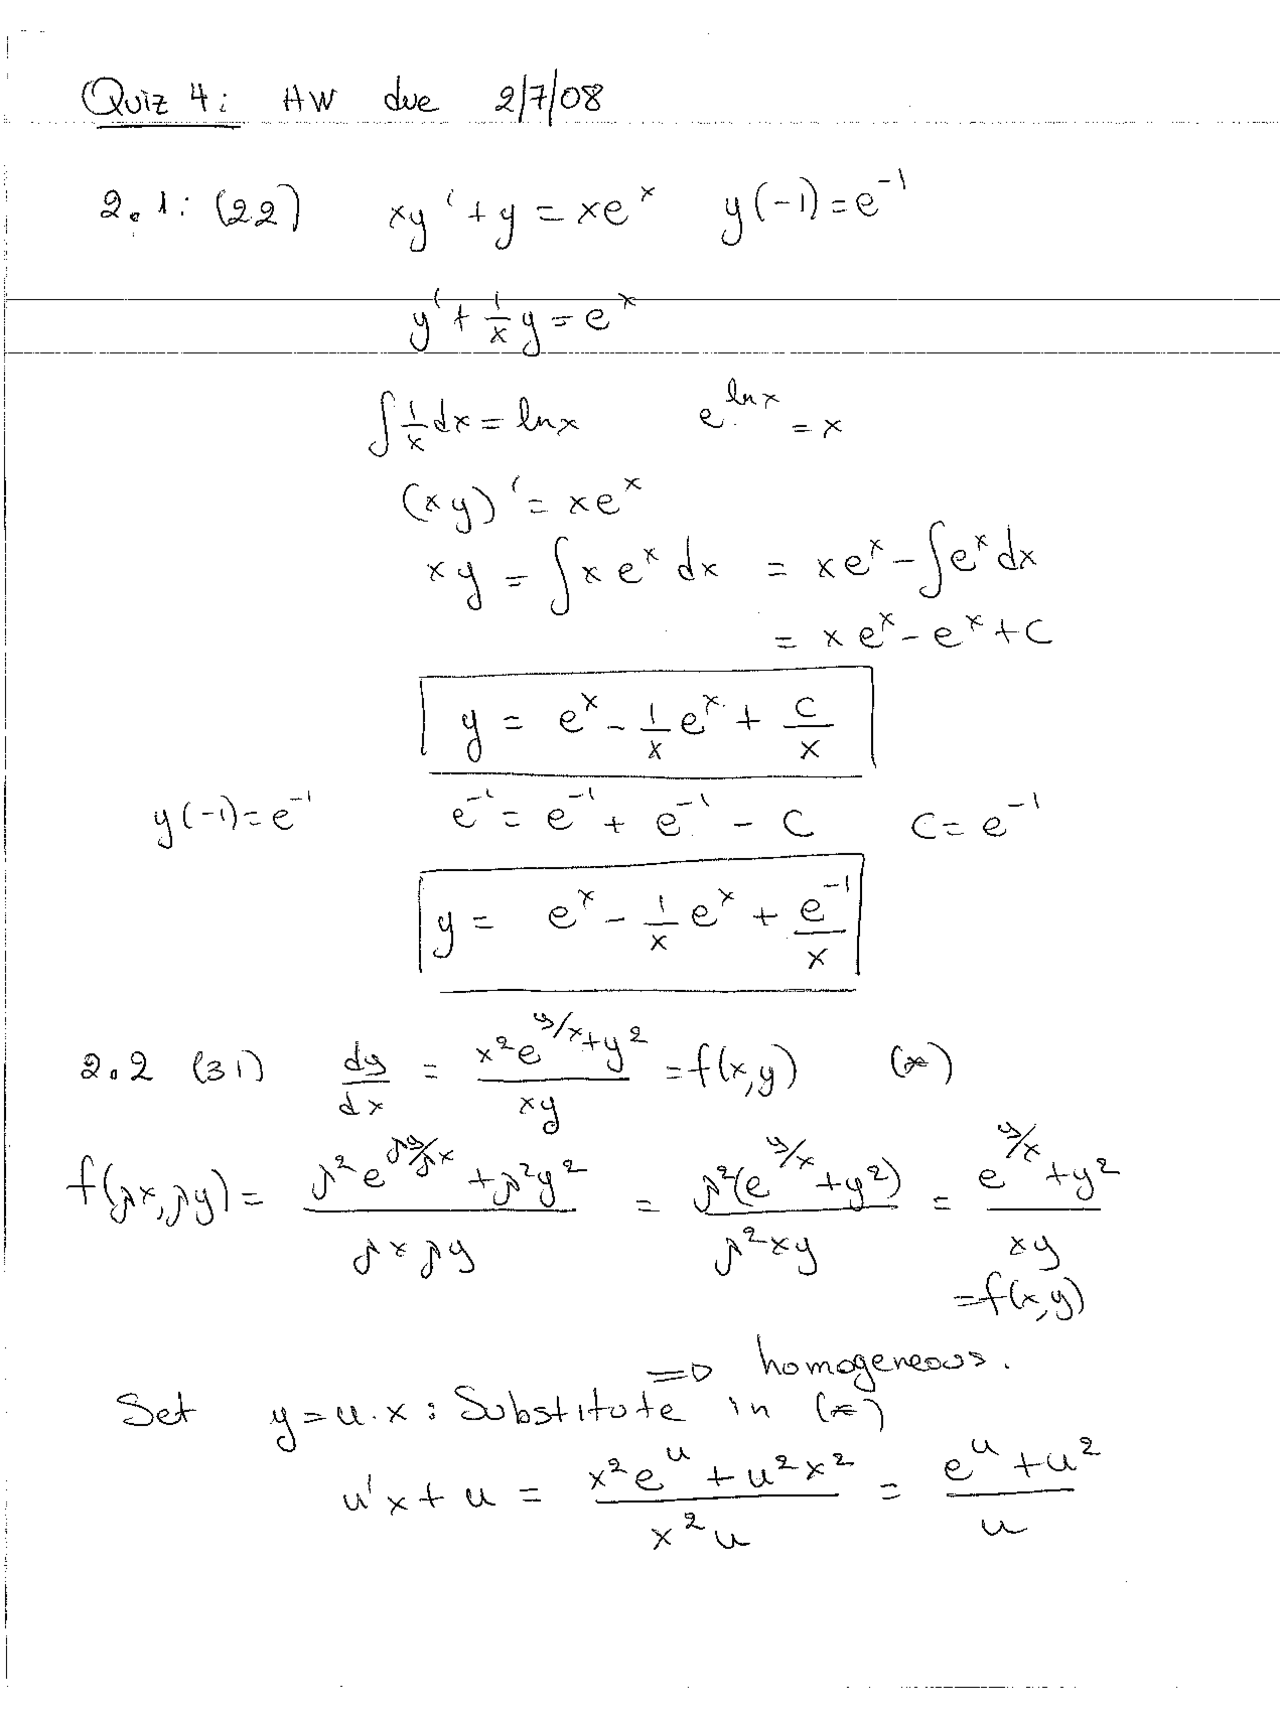 Quiz 4: HW due 2/7/08
2.1: (22) xy' + y = xe^x y(-1) = e^{-1}
y' + \frac{1}{x} y = e^x
∫ \frac{1}{x} dx = ln x e^{ln x} = x
(xy)' = xe^x
xy = ∫ x e^x dx = xe^x - ∫ e^x dx
= x e^x - e^x + C
y = e^x - \frac{1}{x} e^x + \frac{C}{x}
y(-1) = e^{-1} e^{-1} = e^{-1} + e^{-1} - C C = e^{-1}
y = e^x - \frac{1}{x} e^x + \frac{e^{-1}}{x}
2.2 (31) \frac{dy}{dx} = \frac{x^2 e^{y/x} + y^2}{xy} = f(x,y) (*)
f(λx, λy) = \frac{λ^2 e^{λy/λx} + λ^2 y^2}{λx λy} = \frac{λ^2 (e^{y/x} + y^2)}{λ^2 xy} = \frac{e^{y/x} + y^2}{xy}
= f(x,y)
=> homogeneous.
Set y = u.x : Substitute in (*)
u'x + u = \frac{x^2 e^u + u^2 x^2}{x^2 u} = \frac{e^u + u^2}{u}